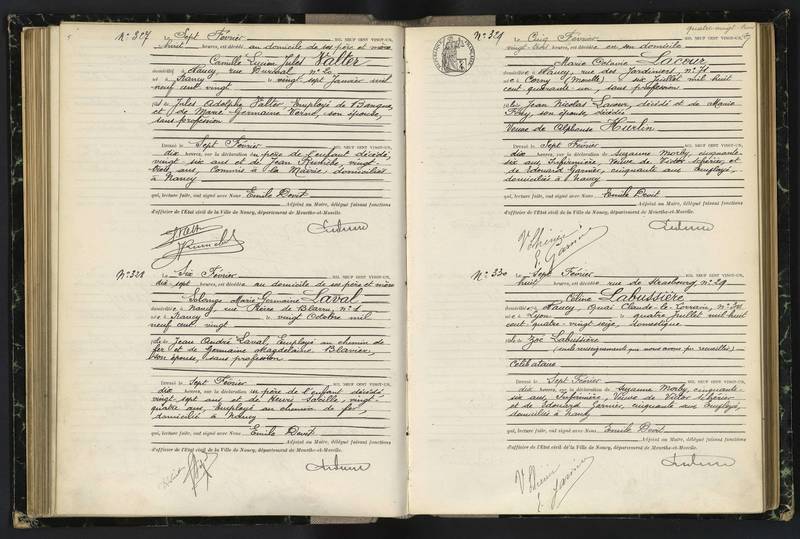 N° 327 Le Sept Février MIL NEUF CENT VINGT-UN,
huit heures, est décédé au domicile de ses père et mère
Camille Lucien Jules Valter
domicilié à Nancy, rue N° 20
né à Nancy le vingt sept Janvier mil
neuf cent vingt
fils de Jules Adolphe Valter, Employé de Banque,
et de Marie Germaine son épouse,
sans profession
Dressé le Sept Février MIL NEUF CENT VINGT-UN,
dix heures, sur la déclaration du père de l'enfant décédé,
vingt six ans et de Jean vingt
ans, Commis à la Mairie, domiciliés
à Nancy
qui, lecture faite, ont signé avec Nous Emile Devit
Adjoint au Maire, délégué faisant fonctions
d'officier de l'Etat civil de la Ville de Nancy, département de Meurthe-et-Moselle.
N° 328 Le Six Février MIL NEUF CENT VINGT-UN,
dix sept heures, est décédée au domicile de ses père et mère
Solange Marie Germaine Laval
domiciliée à Nancy, rue Pierre de Blarru, n° 1
née à Nancy le vingt Octobre mil
neuf cent vingt
fille de Jean André Laval, Employé au chemin de
fer et de Germaine Magdelaine Blavier,
son épouse, sans profession
Dressé le Sept Février MIL NEUF CENT VINGT-UN,
dix heures, sur la déclaration du père de l'enfant décédé,
vingt sept ans et de Henri vingt
quatre ans, Employé au chemin de fer,
domiciliés à Nancy
qui, lecture faite, ont signé avec Nous Emile Devit
Adjoint au Maire, délégué faisant fonctions
d'officier de l'Etat civil de la Ville de Nancy, département de Meurthe-et-Moselle.
quatre-vingt
N° 329 Le Cinq Février MIL NEUF CENT VINGT-UN,
vingt trois heures, est décédée en son domicile
Marie Octavie Lacour
domiciliée à Nancy, rue des Jardiniers n° 71
née à Corny (Moselle) le six Juillet mil huit
cent quarante un, sans profession
fille de Jean Nicolas Lacour, décédé et de Marie
son épouse, décédée
Veuve de Alphonse Hurlin
Dressé le Sept Février MIL NEUF CENT VINGT-UN,
dix heures, sur la déclaration de Suzanne Morby, cinquante
six ans, Infirmière, Veuve de Victor et
de Edouard Garnier, cinquante ans, Employé,
domiciliés à Nancy
qui, lecture faite, ont signé avec Nous Emile Devit
Adjoint au Maire, délégué faisant fonctions
d'officier de l'Etat civil de la Ville de Nancy, département de Meurthe-et-Moselle.
E. Garnier
N° 330 Le Sept Février MIL NEUF CENT VINGT-UN,
huit heures, est décédée rue de Strasbourg, n° 29
Céline Labussière
domiciliée à Nancy, Quai Claude-le-Lorrain, n°
née à Lyon le quatre Juillet mil huit
cent quatre-vingt seize, domestique
fille de Zoé Labussière
(seuls renseignements que nous avons pu recueillir)
Célibataire
Dressé le Sept Février MIL NEUF CENT VINGT-UN,
dix heures, sur la déclaration de Suzanne Morby, cinquante
six ans, Infirmière, Veuve de Victor
et de Edouard Garnier, cinquante ans, Employé,
domiciliés à Nancy
qui, lecture faite, ont signé avec Nous Emile Devit
Adjoint au Maire, délégué faisant fonctions
d'officier de l'Etat civil de la Ville de Nancy, département de Meurthe-et-Moselle.
E. Garnier